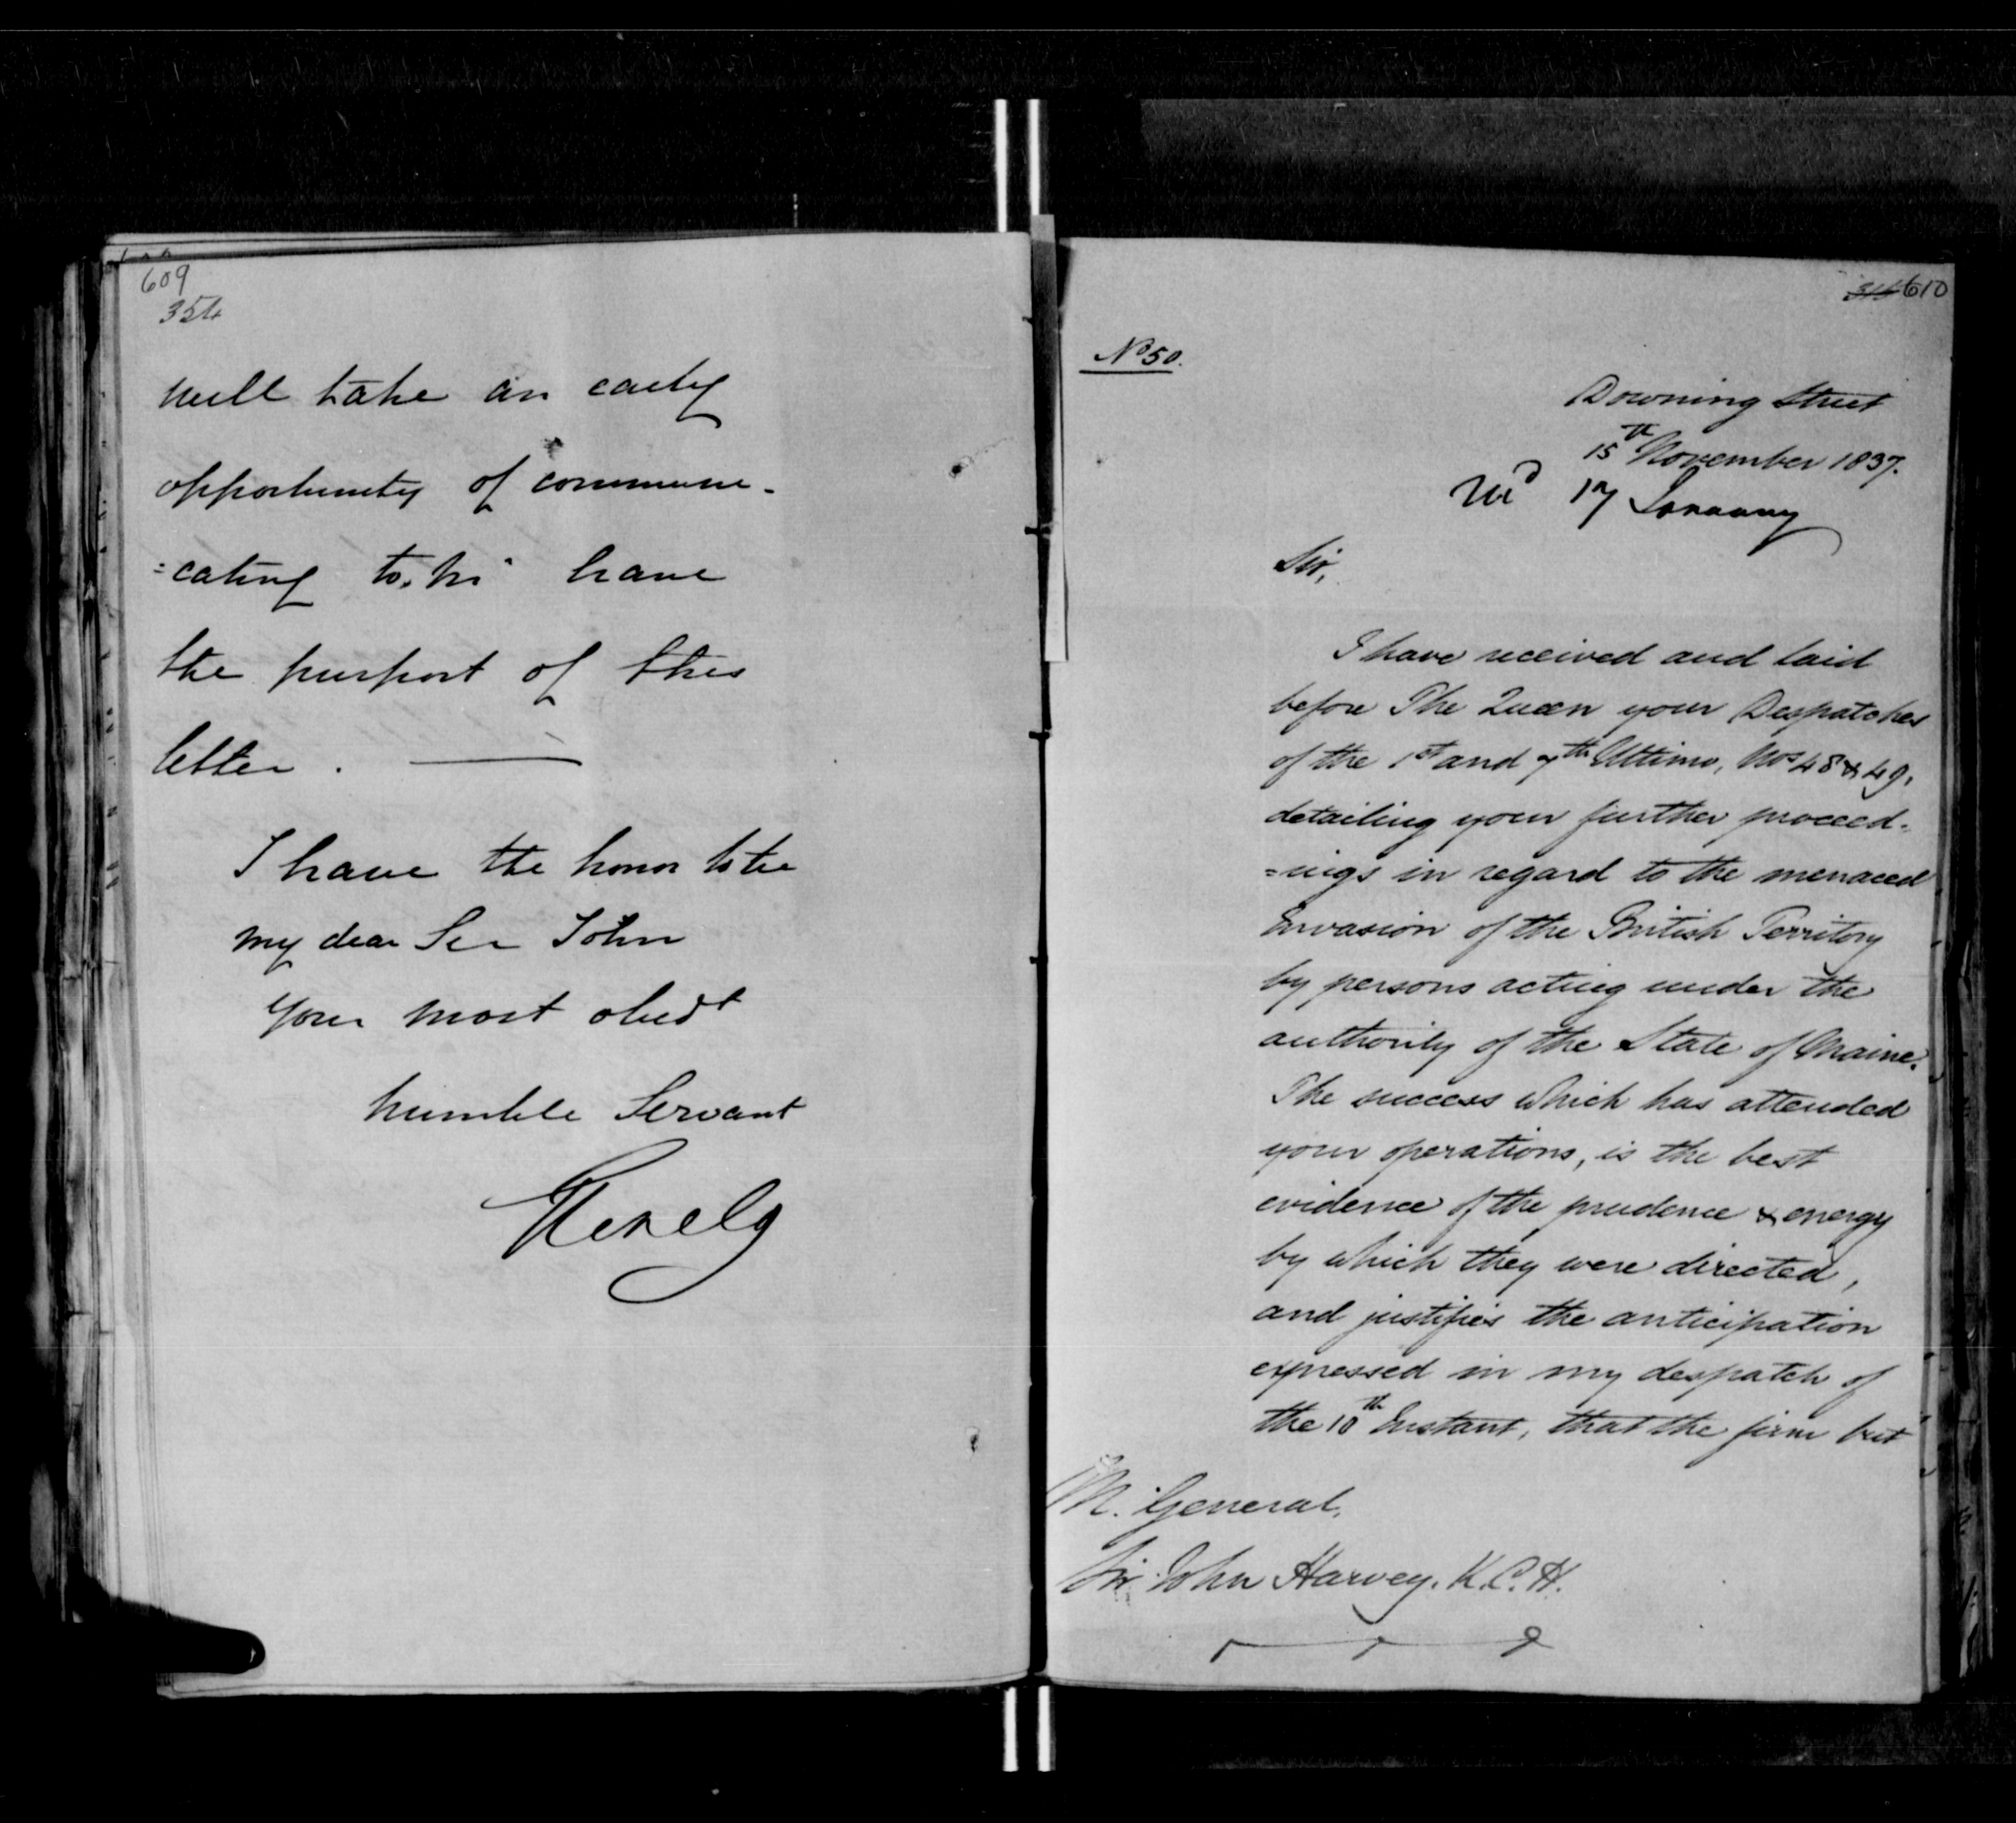 609
354
will take an early
opportunity of communi-
=cating to have
the purport of this
letter.
I have the honor to be
my dear Sir John
Your most obedt
humble Servant
Glenelg
610
No 50.
Downing Street
15th November 1837.
17 January
Sir,
I have received and laid
before The Queen your Despatches
of the 1st and 7th Ultimo, Nos 48 & 49,
detailing your further proceed-
=ings in regard to the menaced
Invasion of the British Territory
by persons acting under the
authority of the State of Maine.
The success which has attended
your operations, is the best
evidence of the prudence & energy
by which they were directed,
and justifies the anticipation
expressed in my despatch of
the 10th Instant, that the firm but
M. General,
Sir John Harvey. K.C.H.